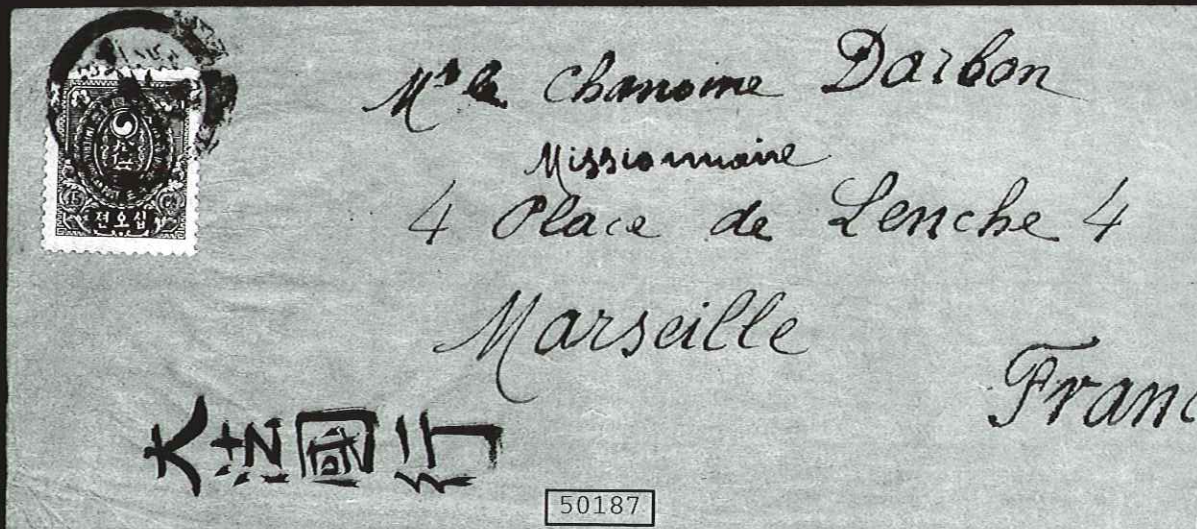 Mr le Chanoine Darbon
Missionnaire
4 Place de Lenche 4
Marseille
Franc
십오젼
大法國行
50187